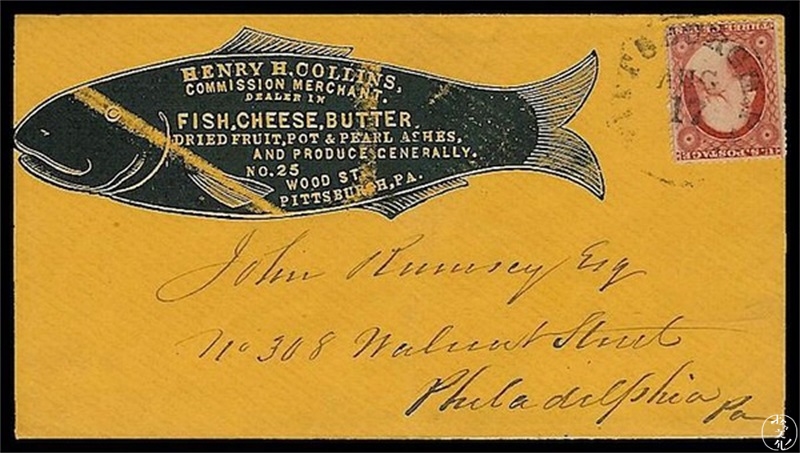 HENRY H. COLLINS,
COMMISSION MERCHANT.
DEALER IN
FISH, CHEESE, BUTTER,
DRIED FRUIT, POT & PEARL ASHES,
AND PRODUCE GENERALLY.
NO. 25
WOOD ST.
PITTSBURGH, PA.
AUG
17
U.S. POSTAGE
John Rumsey Esq
No 308 Walnut Street
Philadelphia Pa